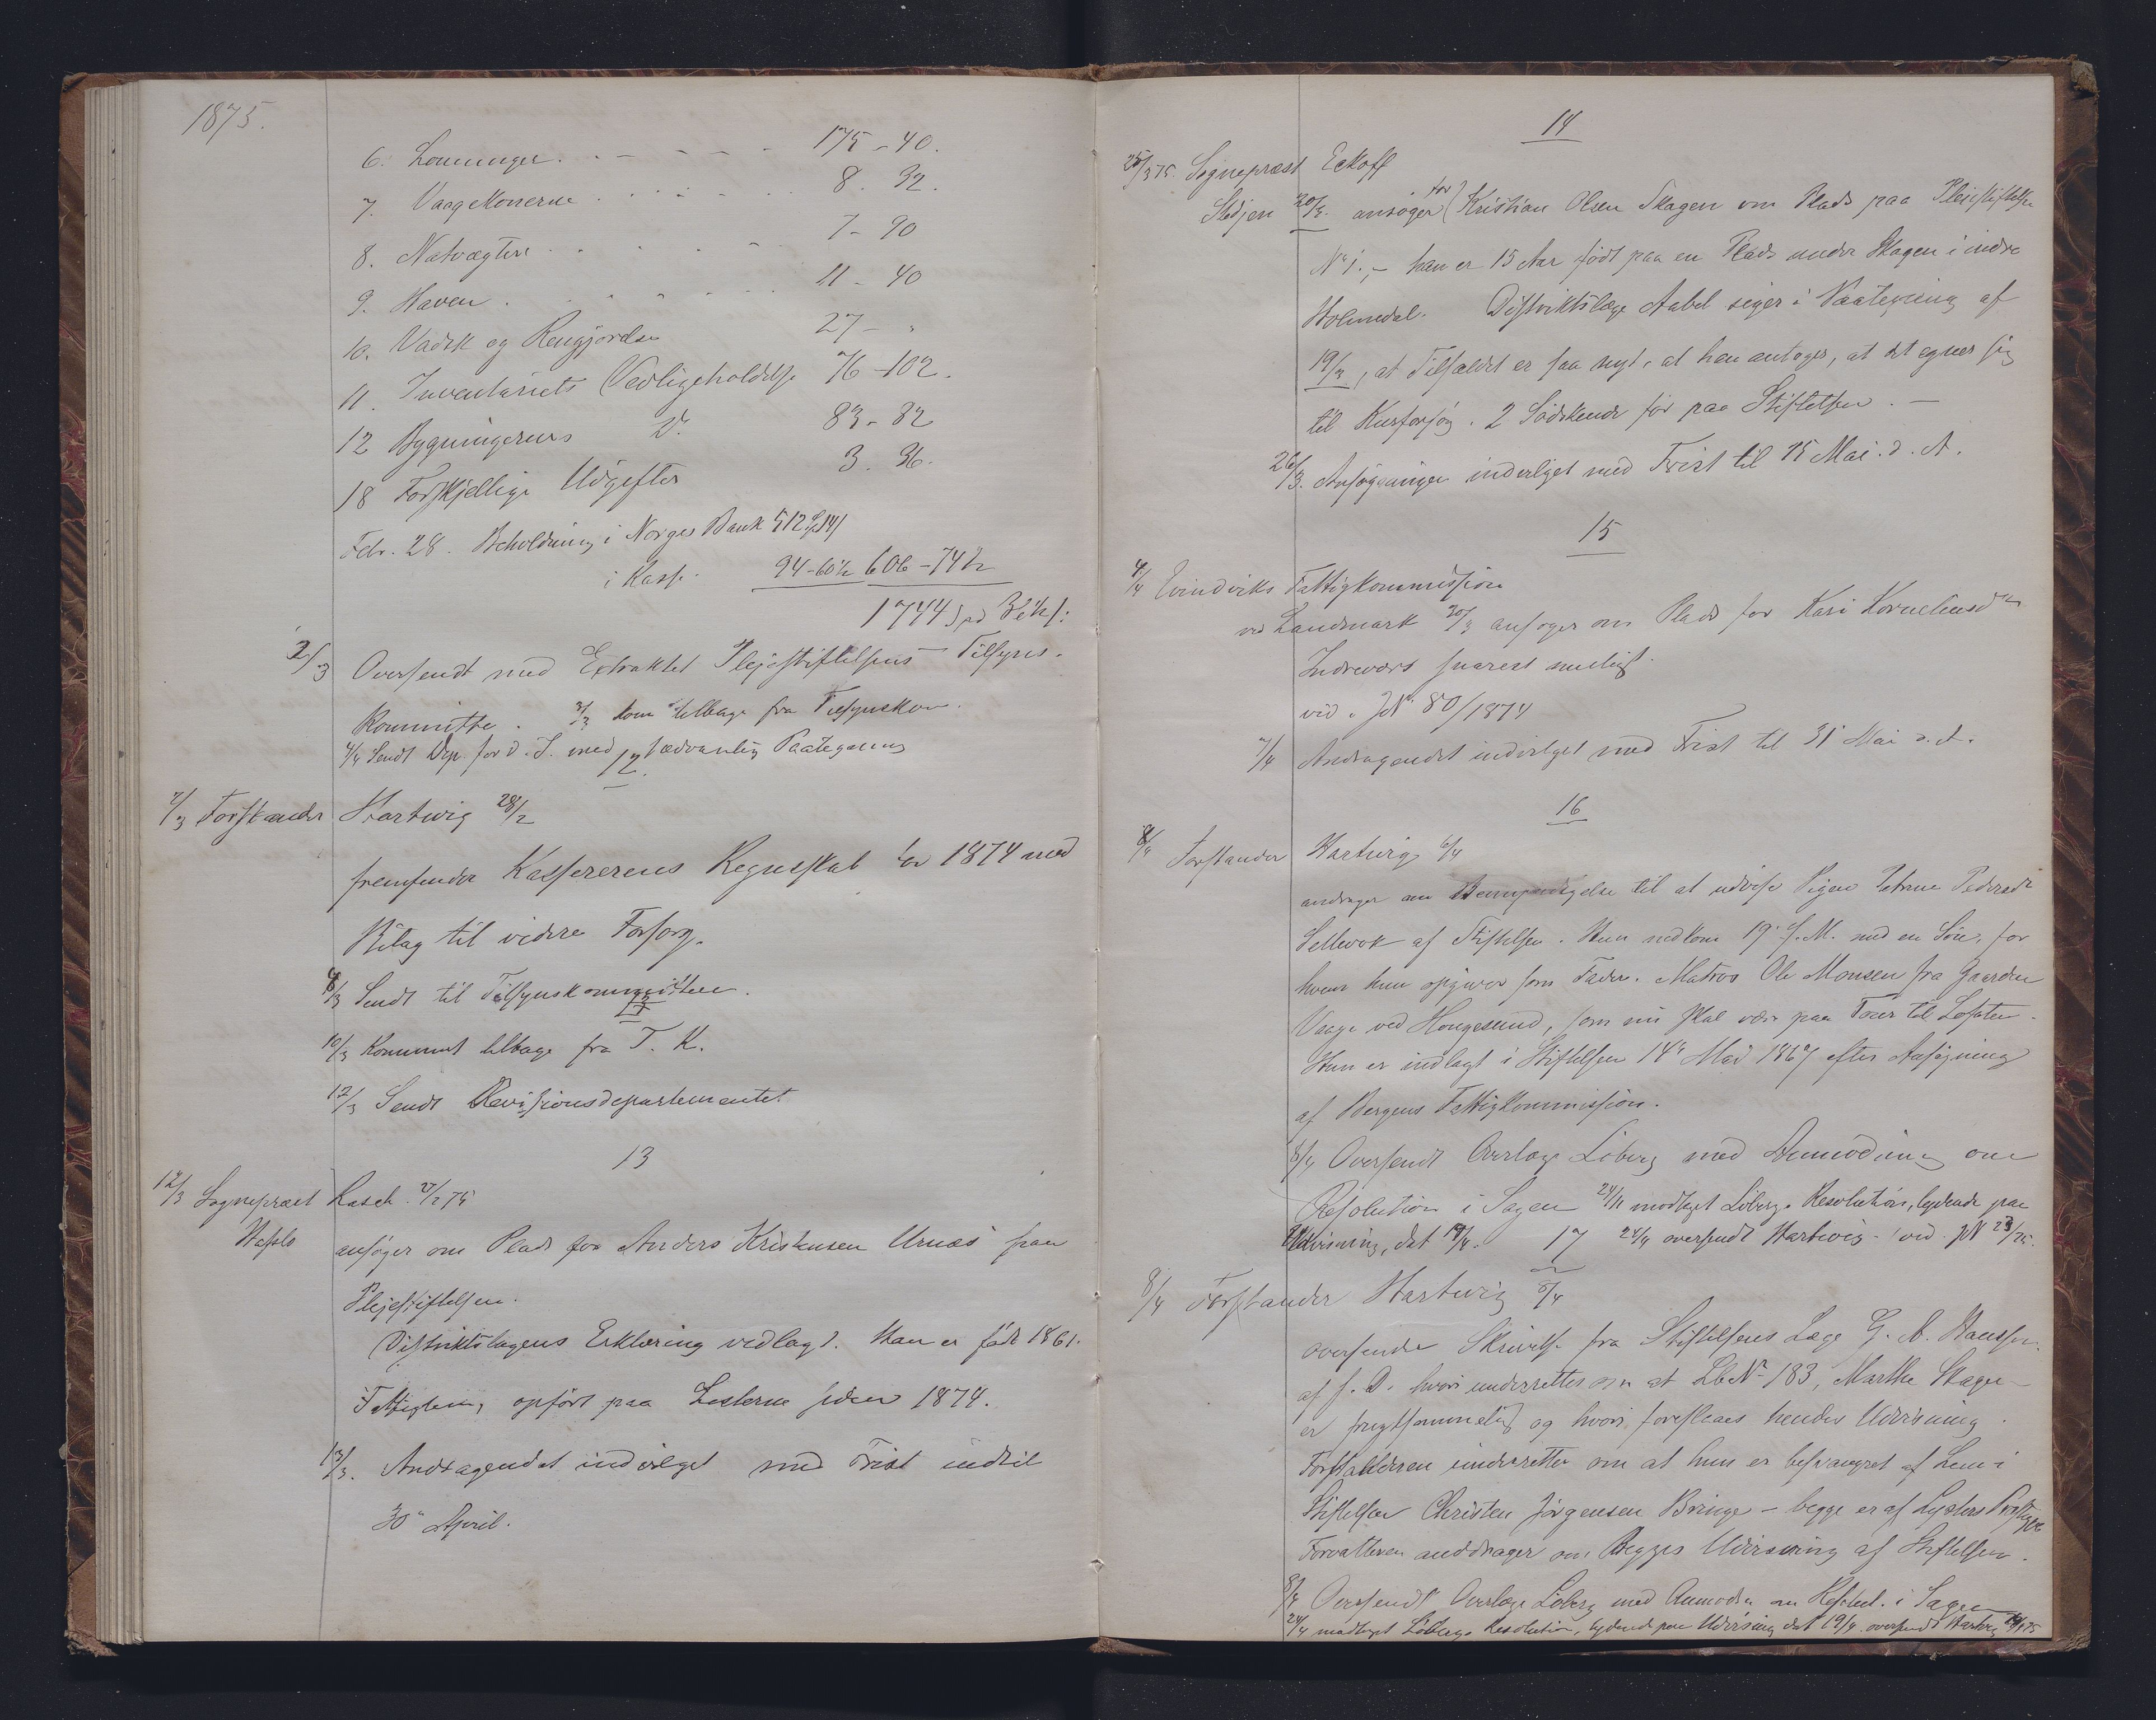 1875.
6. Lønninger. 175 - 40.
7. Vaagekonerne 8. 32.
8. Natvægtere 7 - 90
9. Haven. 11 - 40
10. Vadsk og Rengjørelse 27 - "
11. Inventariets Vedligeholdelse 76 - 102.
12 Bygningernes D. 83 - 82
18 Forskjellige Udgifter 3. 36.
Febr. 28. Beholdning i Norges Bank 512 14
i Kasse. 94 - 60 606 - 74
1744
2/3 Oversendt med Extraktet Plejestiftelsens Tilsyns-
Kommitte. 3/3 kom tilbage fra Tilsynskom.
4/4 Sendt Dep. for d. I. med sædvanlig Paategning
12.
7/3 Forstander Hartwig 28/2
fremsender Kassererens Regnskab for 1874 med
Bilag til videre Forsorg.
8/3 Sendt til Tilsynskommitteen.
10/3 Kommet tilbage fra T. K.
12/3 Sendt Revisionsdepartementet
13
12/3 Sognepræst Rasch 75
Hafslo ansøger om Plads for Anders Kristensen Urnæs paa
Plejestiftelsen.
Distriktslægens Erklæring vedlagt. Han er født 1861.
Fattiglem, opført paa Listerne siden 1874.
13/3. Andragendet indvilget med Frist indtil
30te April.
14
25/3 75 Sognepræst Eckoff
Stedjen 20/3. ansøger for Kristian Olsen Skagen om Plads paa Pleiestiftelsen
No 1. - han er 15 Aar født paa en Plads under Skagen i indre
Holmedal. Distriktslæge Aabel siger i Paategning af
19/3, at Tilfældet er saa nyt, at han antager, at det egner sig
til Kurforsøg. 2 Sødskende før paa Stiftelsen. -
26/3. Ansøgningen indvilget med Frist til 15 Mai d. A.
15
4/4 Evindviks Fattigkommission
ved Landmark 30/3 ansøger om Plads for Kari Korneliusdtr
Indrevær snarest muligt.
vid. JNo 80/1874
7/4 Andragendet indvilget med Frist til 31 Mai d. A.
16
8/4 Forstander Hartwig 6/4
andrager om Bemyndigelse til at udvise Pigen Petrine Pedersdtr
Sellevok af Stiftelsen. Hun nedkom 19 f. M. med en Søn, for
hvem hun opgiver som Fader. Matros Ole Monsen fra Gaarden
Vaage ved Hougesund, som nu skal være paa Tour til Lofoten.
Hun er indlagt i Stiftelsen 14de Mai 1867 efter Ansøgning
af Bergens Fattigkommission.
8/4 Oversendt Overlæge Løberg med Anmodning om
Resolution i Sagen 24/4 modtaget Løbergs Resolution, lydende paa
Udvisning, dat 19/4. 24/4 oversendt Hartwig - vid. JN 23/75.
17
8/4 Forstander Hartwig 7/4
oversender Skrivelse fra Stiftelsens Læge G. A. Hansen
af s. D. hvori underrettes om at Lb No 183, Marthe Skagen
er frugtsommelig og hvori foreslaaes hendes Udvisning.
Forstanderen underretter om at hun er besvangret af Lem i
Stiftelsen Christen Jørgensen Bringe - begge er af Lysters Prstgjld
Forvalteren anddrager om Begges Udvisning af Stiftelsen.
8/4 Oversendt Overlæge Løberg med Anmodn om Resolut. i Sagen
24/4 modtaget Løbergs Resolution, lydende paa Udvisning dat 19/4 oversendt Hartwig 24/4 75